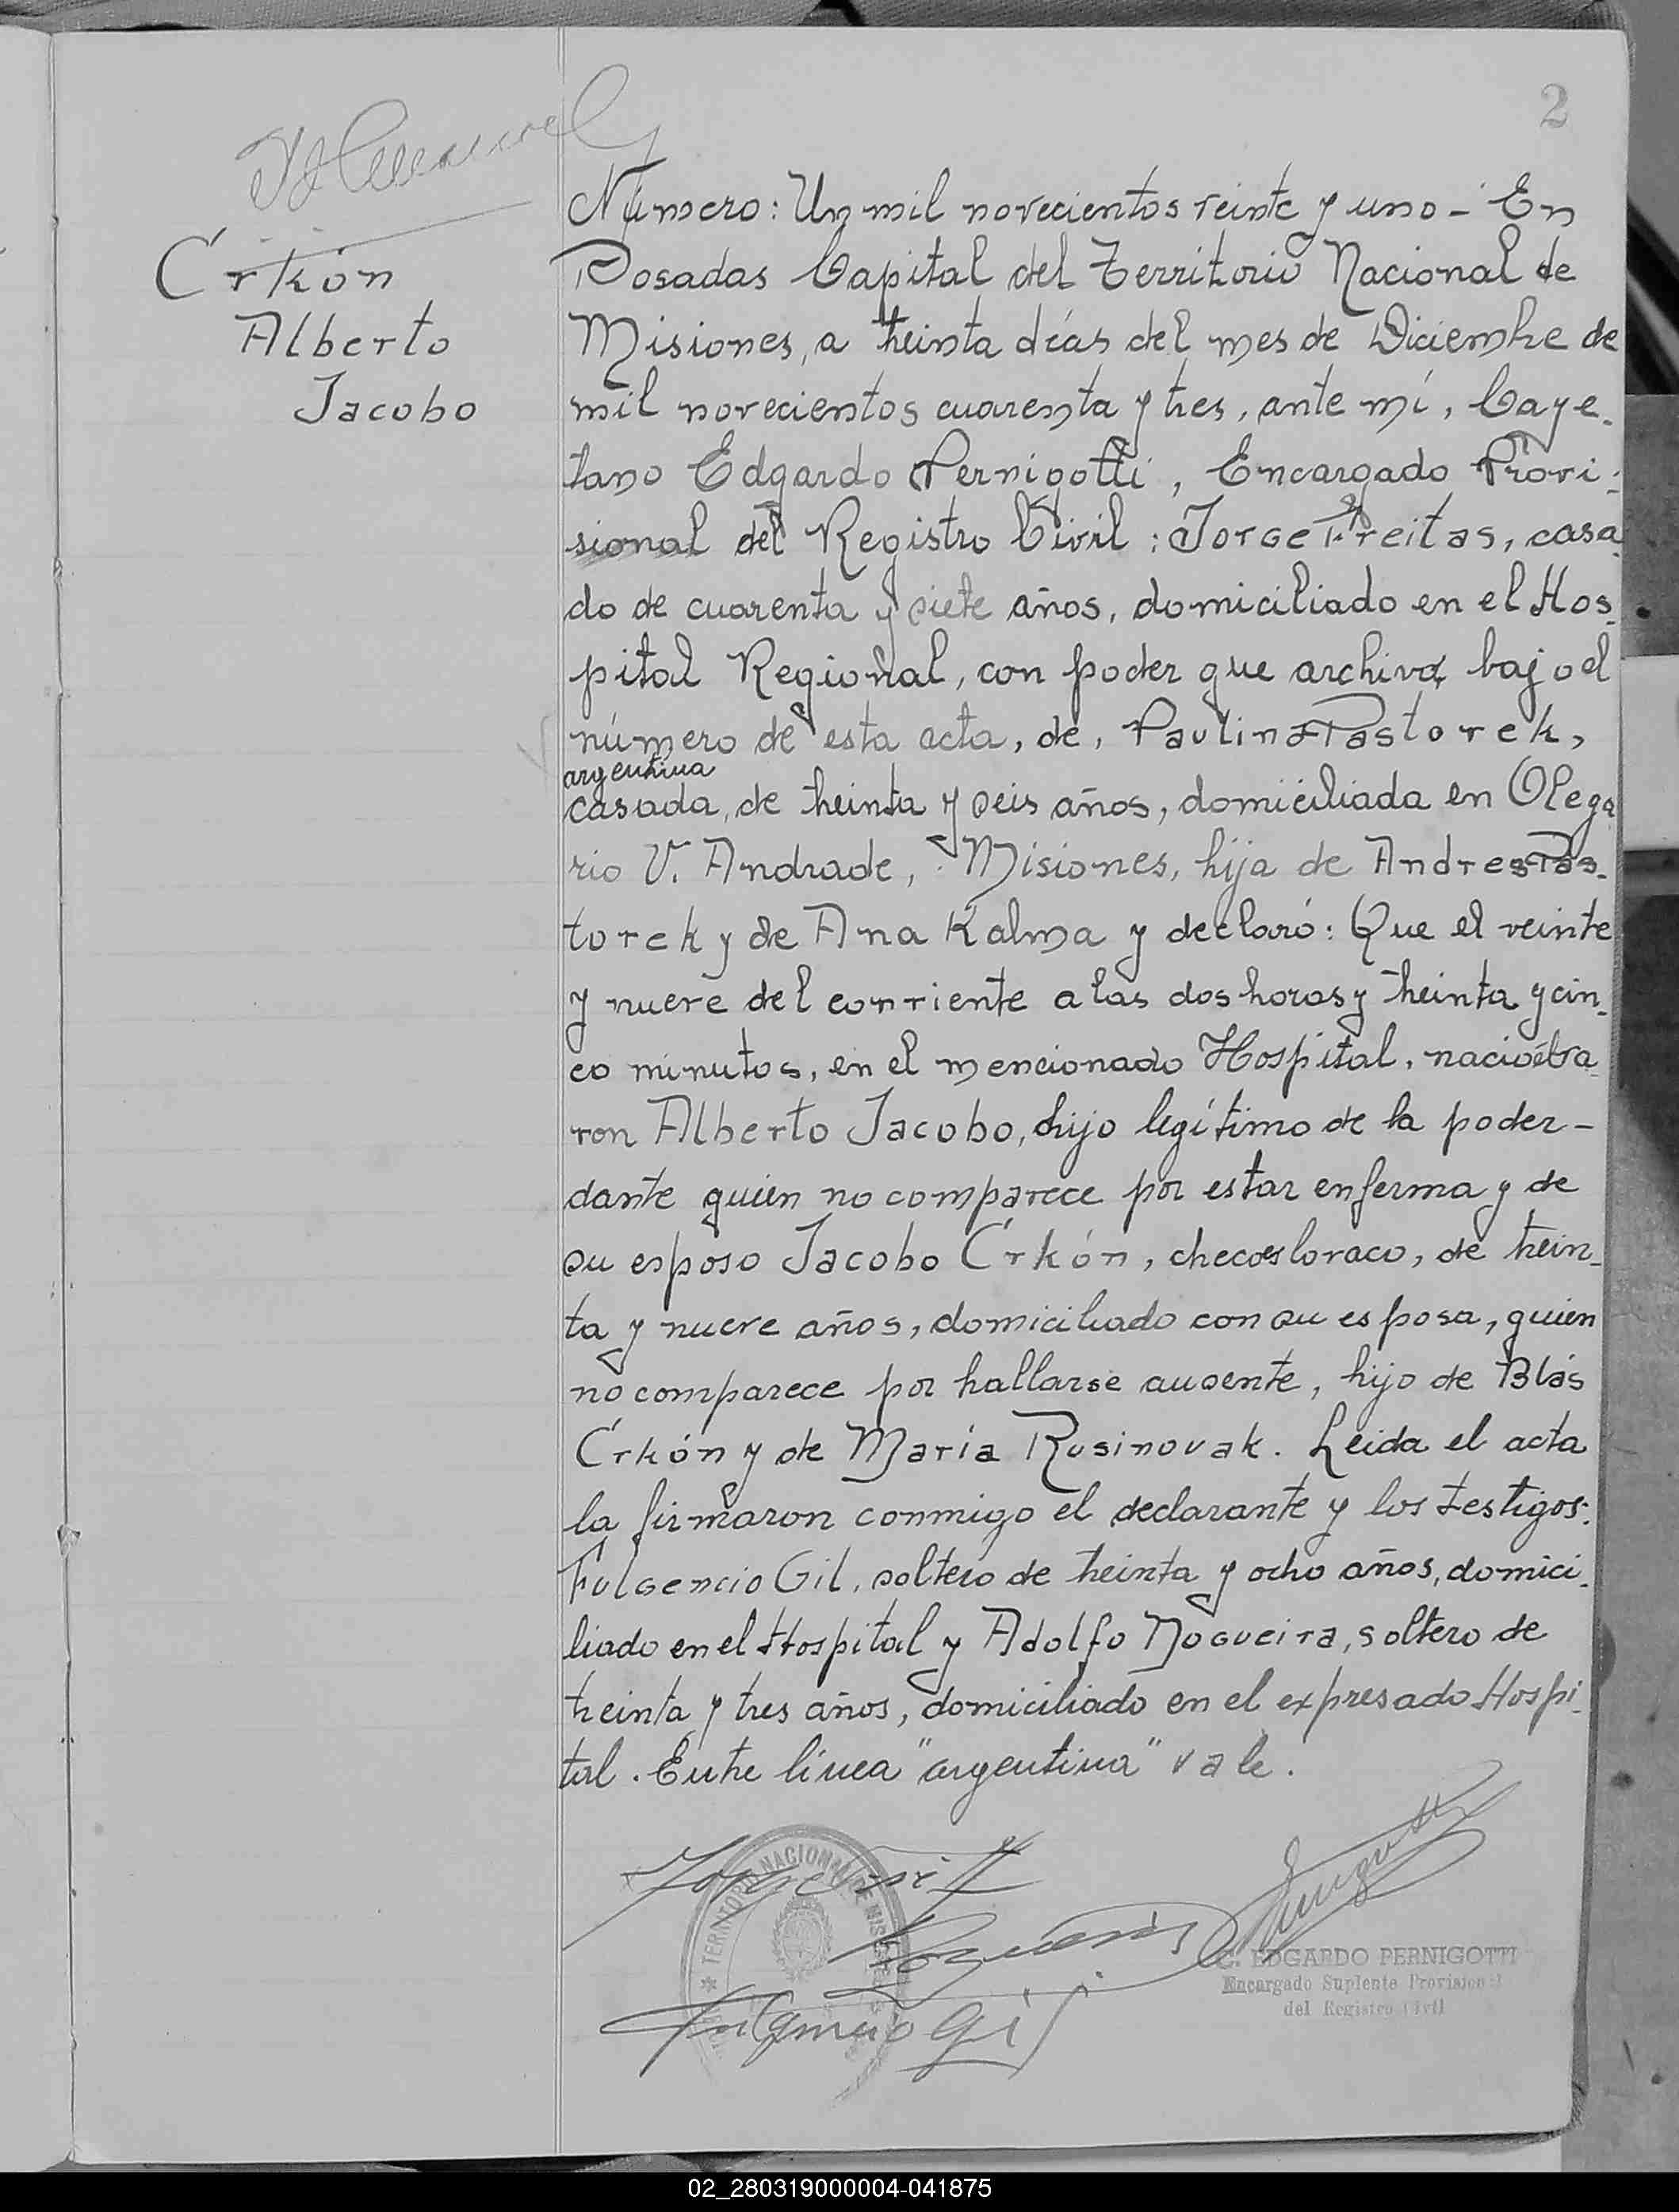 2
Crkón
Alberto
Jacobo
Número: Un mil novecientos veinte y uno - En
Posadas Capital del Territorio Nacional de
Misiones, a treinta días del mes de Diciembre de
mil novecientos cuarenta y tres, ante mí, Caye-
tano Edgardo Pernigotti, Encargado Provi-
sional del Registro Civil: Jorge Freitas, casa
do de cuarenta y siete años, domiciliado en el Hos-
pital Regional, con poder que archivo bajo el
número de esta acta, de, Paulina Pastorek,
argentina
casada, de treinta y seis años, domiciliada en Olega
rio V. Andrade, Misiones, hija de Andres Pas-
torek y de Ana Kalma y declaró: Que el veinte
y nueve del corriente a las dos horas y treinta y cin-
co minutos, en el mencionado Hospital, nació el va-
ron Alberto Jacobo, hijo legítimo de la poder-
dante quien no comparece por estar enferma y de
su esposo Jacobo Crkón, checoeslovaco, de trein-
ta y nueve años, domiciliado con su esposa, quien
no comparece por hallarse ausente, hijo de Blás
Crkón y de María Rusinovak. Leida el acta
la firmaron conmigo el declarante y los testigos:
Fulgencio Gil, soltero de treinta y ocho años, domici-
liado en el Hospital y Adolfo Nogueira, soltero de
treinta y tres años, domiciliado en el expresado Hospi-
tal. Entre línea "argentina" vale.
TERRITORIO NACIONAL DE MISIONES
Fulgencio Gil
C. EDGARDO PERNIGOTTI
Encargado Suplente Provisional
del Registro Civil
02_280319000004-041875